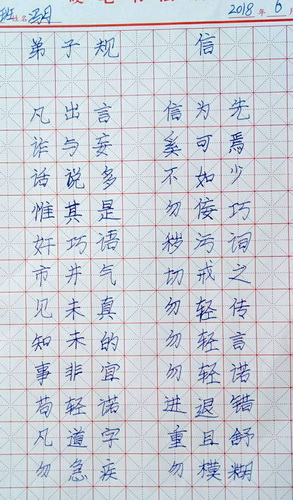 班 姓名 冯月 2018 年 6 月
弟子规 信
凡出言 信为先
诈与妄 奚可焉
话说多 不如少
惟其是 勿佞巧
奸巧语 秽污词
市井气 切戒之
见未真 勿轻传
知未的 勿轻言
事非宜 勿轻诺
苟轻诺 进退错
凡道字 重且舒
勿急疾 勿模糊